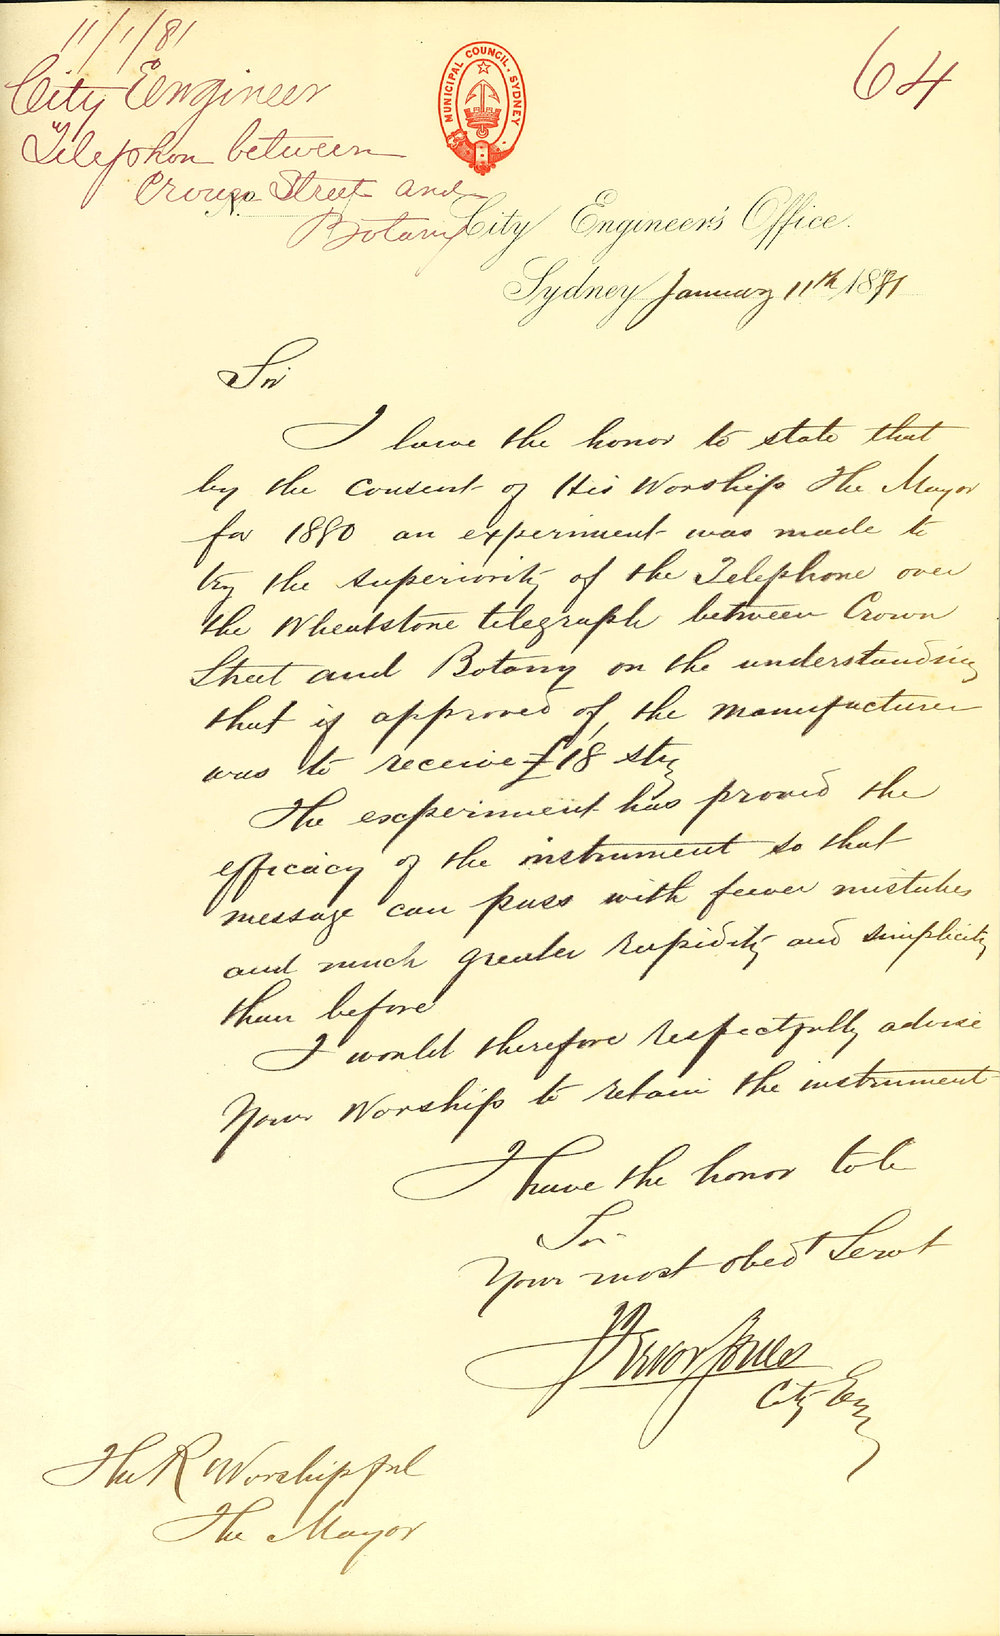 11/1/81
City Engineer
Telephon between
Crown Street and
Botany
64
MUNICIPAL COUNCIL · SYDNEY
No
City Engineer's Office.
Sydney January 11th 1881
Sir
I have the honor to state that
by the consent of His Worship The Mayor
for 1880 an experiment was made to
try the superiority of the Telephone over
the Wheatstone telegraph between Crown
Street and Botany on the understanding
that if approved of, the manufacturer
was to receive £18 stg
The experiment has proved the
efficacy of the instrument so that
message can pass with fewer mistakes
and much greater rapidity and simplicity
than before
I would therefore respectfully advise
Your Worship to retain the instrument
I have the honor to be
Sir
Your most obedt Servt
Trevor Jones
City Eng
The R Worshipful
The Mayor